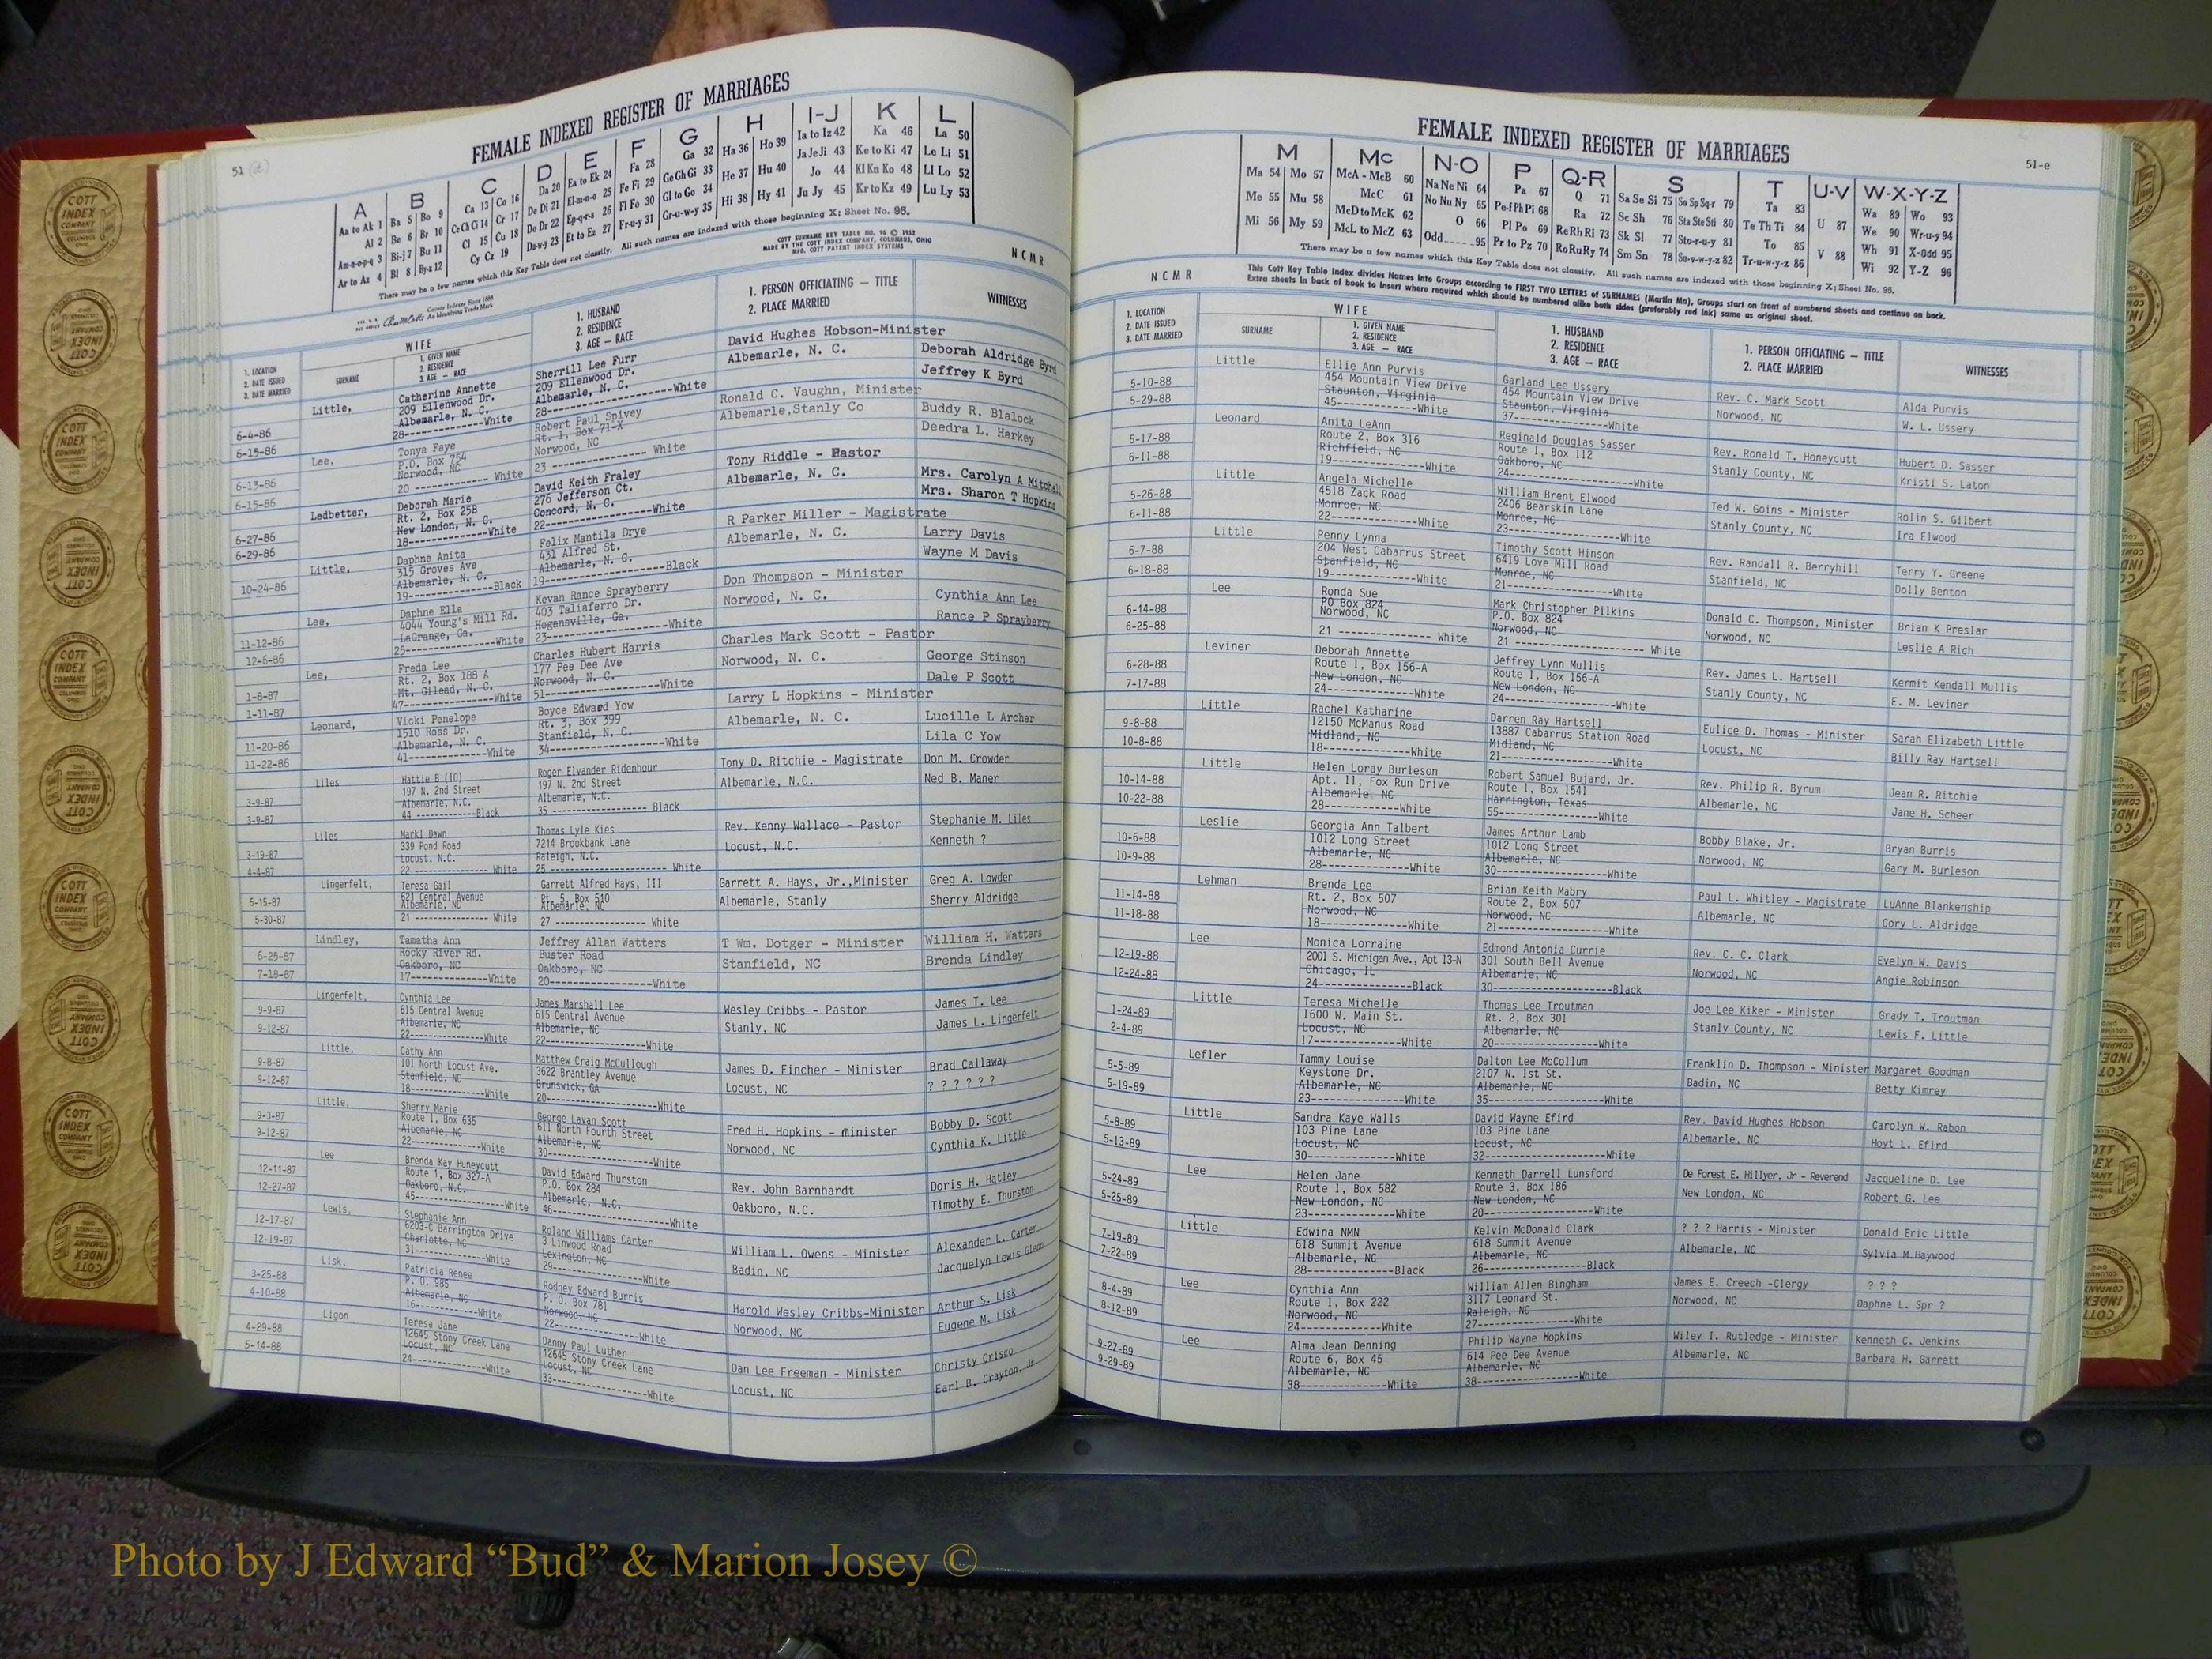 51 (d)
FEMALE INDEXED REGISTER OF MARRIAGES
A B C D E F G H I-J K L
Aa to Ak 1 Ba 5 Bo 9 Ca 13 Co 16 Da 20 Ea to Ek 24 Fa 28 Ga 32 Ha 36 Ho 39 Ia to Iz 42 Ka 46 La 50
Al 2 Be 6 Br 10 Ce Ch Ci 14 Cr 17 De Di 21 El-m-n-o 25 Fe Fi 29 Ge Gh Gi 33 He 37 Hu 40 Ja Je Ji 43 Ke to Ki 47 Le Li 51
Am-n-o-p-q 3 Bi-j 7 Bu 11 Cl 15 Cu 18 Do Dr 22 Ep-q-r-s 26 Fl Fo 30 Gl to Go 34 Hi 38 Hy 41 Jo 44 Kl Kn Ko 48 Ll Lo 52
Ar to Az 4 Bl 8 By-z 12 Cy Cz 19 Du-w-y 23 Et to Ez 27 Fr-u-y 31 Gr-u-w-y 35 Ju Jy 45 Kr to Kz 49 Lu Ly 53
There may be a few names which this Key Table does not classify. All such names are indexed with those beginning X; Sheet No. 95.
County Indexes Since 1888
An Identifying Trade Mark
COTT SURNAME KEY TABLE NO. 96 © 1952
MADE BY THE COTT INDEX COMPANY, COLUMBUS, OHIO
MFG. COTT PATENT INDEX SYSTEMS
NCMR
1. LOCATION
2. DATE ISSUED
3. DATE MARRIED
WIFE
SURNAME
1. GIVEN NAME
2. RESIDENCE
3. AGE — RACE
1. HUSBAND
2. RESIDENCE
3. AGE — RACE
1. PERSON OFFICIATING — TITLE
2. PLACE MARRIED
WITNESSES
6-4-86
6-15-86
Little,
Catherine Annette
209 Ellenwood Dr.
Albemarle, N. C.
28--------------White
Sherrill Lee Furr
209 Ellenwood Dr.
Albemarle, N. C.
28--------------White
David Hughes Hobson-Minister
Albemarle, N. C.
Deborah Aldridge Byrd
Jeffrey K Byrd
6-13-86
6-15-86
Lee,
Tonya Faye
P.O. Box 754
Norwood, NC
20 ------------- White
Robert Paul Spivey
Rt. 1, Box 71-X
Norwood, NC
23 ------------- White
Ronald C. Vaughn, Minister
Albemarle,Stanly Co
Buddy R. Blalock
Deedra L. Harkey
6-27-86
6-29-86
Ledbetter,
Deborah Marie
Rt. 2, Box 25B
New London, N. C.
18--------------White
David Keith Fraley
276 Jefferson Ct.
Concord, N. C.
22--------------White
Tony Riddle - Pastor
Albemarle, N. C.
Mrs. Carolyn A Mitchell
Mrs. Sharon T Hopkins
10-24-86
Little,
Daphne Anita
315 Groves Ave
Albemarle, N. C.
19--------------Black
Felix Mantila Drye
431 Alfred St.
Albemarle, N. C.
19--------------Black
R Parker Miller - Magistrate
Albemarle, N. C.
Larry Davis
Wayne M Davis
11-12-86
12-6-86
Lee,
Daphne Ella
4044 Young's Mill Rd.
LaGrange, Ga.
25--------------White
Kevan Rance Sprayberry
403 Taliaferro Dr.
Hogansville, Ga.
23--------------White
Don Thompson - Minister
Norwood, N. C.
Cynthia Ann Lee
Rance P Sprayberry
1-8-87
1-11-87
Lee,
Freda Lee
Rt. 2, Box 188 A
Mt. Gilead, N. C.
47--------------White
Charles Hubert Harris
177 Pee Dee Ave
Norwood, N. C.
51--------------White
Charles Mark Scott - Pastor
Norwood, N. C.
George Stinson
Dale P Scott
11-20-86
11-22-86
Leonard,
Vicki Penelope
1510 Ross Dr.
Albemarle, N. C.
41--------------White
Boyce Edward Yow
Rt. 3, Box 399
Stanfield, N. C.
34--------------White
Larry L Hopkins - Minister
Albemarle, N. C.
Lucille L Archer
Lila C Yow
3-9-87
3-9-87
Liles
Hattie B (IO)
197 N. 2nd Street
Albemarle, N.C.
44 ------------Black
Roger Elvander Ridenhour
197 N. 2nd Street
Albemarle, N.C.
35 ------------- Black
Tony D. Ritchie - Magistrate
Albemarle, N.C.
Don M. Crowder
Ned B. Maner
3-19-87
4-4-87
Liles
Markl Dawn
339 Pond Road
Locust, N.C.
22 ------------- White
Thomas Lyle Kies
7214 Brookbank Lane
Raleigh, N.C.
25 ------------- White
Rev. Kenny Wallace - Pastor
Locust, N.C.
Stephanie M. Liles
Kenneth ?
5-15-87
5-30-87
Lingerfelt,
Teresa Gail
621 Central Avenue
Albemarle, NC
21 ------------- White
Garrett Alfred Hays, III
Rt. 5, Box 510
Albemarle, NC
27 ------------- White
Garrett A. Hays, Jr.,Minister
Albemarle, Stanly
Greg A. Lowder
Sherry Aldridge
6-25-87
7-18-87
Lindley,
Tamatha Ann
Rocky River Rd.
Oakboro, NC
17--------------White
Jeffrey Allan Watters
Buster Road
Oakboro, NC
20--------------White
T Wm. Dotger - Minister
Stanfield, NC
William H. Watters
Brenda Lindley
9-9-87
9-12-87
Lingerfelt,
Cynthia Lee
615 Central Avenue
Albemarle, NC
22--------------White
James Marshall Lee
615 Central Avenue
Albemarle, NC
22--------------White
Wesley Cribbs - Pastor
Stanly, NC
James T. Lee
James L. Lingerfelt
9-8-87
9-12-87
Little,
Cathy Ann
101 North Locust Ave.
Stanfield, NC
18--------------White
Matthew Craig McCullough
3622 Brantley Avenue
Brunswick, GA
20--------------White
James D. Fincher - Minister
Locust, NC
Brad Callaway
? ? ? ? ? ?
9-3-87
9-12-87
Little,
Sherry Marie
Route 1, Box 635
Albemarle, NC
22--------------White
George Lavan Scott
611 North Fourth Street
Albemarle, NC
30--------------White
Fred H. Hopkins - minister
Norwood, NC
Bobby D. Scott
Cynthia K. Little
12-11-87
12-27-87
Lee
Brenda Kay Huneycutt
Route 1, Box 327-A
Oakboro, N.C.
45--------------White
David Edward Thurston
P.O. Box 284
Albemarle, N.C.
46--------------White
Rev. John Barnhardt
Oakboro, N.C.
Doris H. Hatley
Timothy E. Thurston
12-17-87
12-19-87
Lewis,
Stephanie Ann
6203-C Barrington Drive
Charlotte, NC
31--------------White
Roland Williams Carter
3 Linwood Road
Lexington, NC
29--------------White
William L. Owens - Minister
Badin, NC
Alexander L. Carter
Jacquelyn Lewis Glenn
3-25-88
4-10-88
Lisk,
Patricia Renee
P. O. 985
Albemarle, NC
16--------------White
Rodney Edward Burris
P. O. Box 781
Norwood, NC
22--------------White
Harold Wesley Cribbs-Minister
Norwood, NC
Arthur S. Lisk
Eugene M. Lisk
4-29-88
5-14-88
Ligon
Teresa Jane
12645 Stony Creek Lane
Locust, NC
24--------------White
Danny Paul Luther
12645 Stony Creek Lane
Locust, NC
33--------------White
Dan Lee Freeman - Minister
Locust, NC
Christy Crisco
Earl B. Crayton, Jr.
51-e
FEMALE INDEXED REGISTER OF MARRIAGES
M Mc N-O P Q-R S T U-V W-X-Y-Z
Ma 54 Mo 57 McA - McB 60 Na Ne Ni 64 Pa 67 Q 71 Sa Se Si 75 So Sp Sq-r 79 Ta 83 U 87 Wa 89 Wo 93
Me 55 Mu 58 McC 61 No Nu Ny 65 Pe-f Ph Pi 68 Ra 72 Sc Sh 76 Sta Ste Sti 80 Te Th Ti 84 We 90 Wr-u-y 94
Mi 56 My 59 McD to McK 62 O 66 Pl Po 69 Re Rh Ri 73 Sk Sl 77 Sto-r-u-y 81 To 85 V 88 Wh 91 X-Odd 95
McL to McZ 63 Odd 95 Pr to Pz 70 Ro Ru Ry 74 Sm Sn 78 Su-v-w-y-z 82 Tr-u-w-y-z 86 Wi 92 Y-Z 96
There may be a few names which this Key Table does not classify. All such names are indexed with those beginning X; Sheet No. 95.
This Cott Key Table Index divides Names into Groups according to FIRST TWO LETTERS of SURNAMES (Martin Ma), Groups start on front of numbered sheets and continue on back.
Extra sheets in back of book to insert where required which should be numbered alike both sides (preferably red ink) same as original sheet.
NCMR
1. LOCATION
2. DATE ISSUED
3. DATE MARRIED
WIFE
SURNAME
1. GIVEN NAME
2. RESIDENCE
3. AGE — RACE
1. HUSBAND
2. RESIDENCE
3. AGE — RACE
1. PERSON OFFICIATING — TITLE
2. PLACE MARRIED
WITNESSES
5-10-88
5-29-88
Little
Ellie Ann Purvis
454 Mountain View Drive
Staunton, Virginia
45--------------White
Garland Lee Ussery
454 Mountain View Drive
Staunton, Virginia
37--------------White
Rev. C. Mark Scott
Norwood, NC
Alda Purvis
W. L. Ussery
5-17-88
6-11-88
Leonard
Anita LeAnn
Route 2, Box 316
Richfield, NC
19--------------White
Reginald Douglas Sasser
Route 1, Box 112
Oakboro, NC
24--------------White
Rev. Ronald T. Honeycutt
Stanly County, NC
Hubert D. Sasser
Kristi S. Laton
5-26-88
6-11-88
Little
Angela Michelle
4518 Zack Road
Monroe, NC
22--------------White
William Brent Elwood
2406 Bearskin Lane
Monroe, NC
23--------------White
Ted W. Goins - Minister
Stanly County, NC
Rolin S. Gilbert
Ira Elwood
6-7-88
6-18-88
Little
Penny Lynna
204 West Cabarrus Street
Stanfield, NC
19--------------White
Timothy Scott Hinson
6419 Love Mill Road
Monroe, NC
21--------------White
Rev. Randall R. Berryhill
Stanfield, NC
Terry Y. Greene
Dolly Benton
6-14-88
6-25-88
Lee
Ronda Sue
PO Box 824
Norwood, NC
21 -------------- White
Mark Christopher Pilkins
P.O. Box 824
Norwood, NC
21 -------------- White
Donald C. Thompson, Minister
Norwood, NC
Brian K Preslar
Leslie A Rich
6-28-88
7-17-88
Leviner
Deborah Annette
Route 1, Box 156-A
New London, NC
24--------------White
Jeffrey Lynn Mullis
Route 1, Box 156-A
New London, NC
24--------------White
Rev. James L. Hartsell
Stanly County, NC
Kermit Kendall Mullis
E. M. Leviner
9-8-88
10-8-88
Little
Rachel Katharine
12150 McManus Road
Midland, NC
18--------------White
Darren Ray Hartsell
13887 Cabarrus Station Road
Midland, NC
21--------------White
Eulice D. Thomas - Minister
Locust, NC
Sarah Elizabeth Little
Billy Ray Hartsell
10-14-88
10-22-88
Little
Helen Loray Burleson
Apt. 11, Fox Run Drive
Albemarle, NC
28--------------White
Robert Samuel Bujard, Jr.
Route 1, Box 1541
Harrington, Texas
55--------------White
Rev. Philip R. Byrum
Albemarle, NC
Jean R. Ritchie
Jane H. Scheer
10-6-88
10-9-88
Leslie
Georgia Ann Talbert
1012 Long Street
Albemarle, NC
28--------------White
James Arthur Lamb
1012 Long Street
Albemarle, NC
30--------------White
Bobby Blake, Jr.
Norwood, NC
Bryan Burris
Gary M. Burleson
11-14-88
11-18-88
Lehman
Brenda Lee
Rt. 2, Box 507
Norwood, NC
18--------------White
Brian Keith Mabry
Route 2, Box 507
Norwood, NC
21--------------White
Paul L. Whitley - Magistrate
Albemarle, NC
LuAnne Blankenship
Cory L. Aldridge
12-19-88
12-24-88
Lee
Monica Lorraine
2001 S. Michigan Ave., Apt 13-N
Chicago, IL
24--------------Black
Edmond Antonia Currie
301 South Bell Avenue
Albemarle, NC
30--------------Black
Rev. C. C. Clark
Norwood, NC
Evelyn W. Davis
Angie Robinson
1-24-89
2-4-89
Little
Teresa Michelle
1600 W. Main St.
Locust, NC
17--------------White
Thomas Lee Troutman
Rt. 2, Box 301
Albemarle, NC
20--------------White
Joe Lee Kiker - Minister
Stanly County, NC
Grady T. Troutman
Lewis F. Little
5-5-89
5-19-89
Lefler
Tammy Louise
Keystone Dr.
Albemarle, NC
23--------------White
Dalton Lee McCollum
2107 N. 1st St.
Albemarle, NC
35--------------White
Franklin D. Thompson - Minister
Badin, NC
Margaret Goodman
Betty Kimrey
5-8-89
5-13-89
Little
Sandra Kaye Walls
103 Pine Lane
Locust, NC
30--------------White
David Wayne Efird
103 Pine Lane
Locust, NC
32--------------White
Rev. David Hughes Hobson
Albemarle, NC
Carolyn W. Rabon
Hoyt L. Efird
5-24-89
5-25-89
Lee
Helen Jane
Route 1, Box 582
New London, NC
23--------------White
Kenneth Darrell Lunsford
Route 3, Box 186
New London, NC
20--------------White
De Forest E. Hillyer, Jr - Reverend
New London, NC
Jacqueline D. Lee
Robert G. Lee
7-19-89
7-22-89
Little
Edwina NMN
618 Summit Avenue
Albemarle, NC
28--------------Black
Kelvin McDonald Clark
618 Summit Avenue
Albemarle, NC
26--------------Black
? ? ? Harris - Minister
Albemarle, NC
Donald Eric Little
Sylvia M.Haywood
8-4-89
8-12-89
Lee
Cynthia Ann
Route 1, Box 222
Norwood, NC
24--------------White
William Allen Bingham
3117 Leonard St.
Raleigh, NC
27--------------White
James E. Creech -Clergy
Norwood, NC
? ? ?
Daphne L. Spr ?
9-27-89
9-29-89
Lee
Alma Jean Denning
Route 6, Box 45
Albemarle, NC
38--------------White
Philip Wayne Hopkins
614 Pee Dee Avenue
Albemarle, NC
38--------------White
Wiley I. Rutledge - Minister
Albemarle, NC
Kenneth C. Jenkins
Barbara H. Garrett
COTT INDEX COMPANY
Photo by J Edward “Bud” & Marion Josey ©